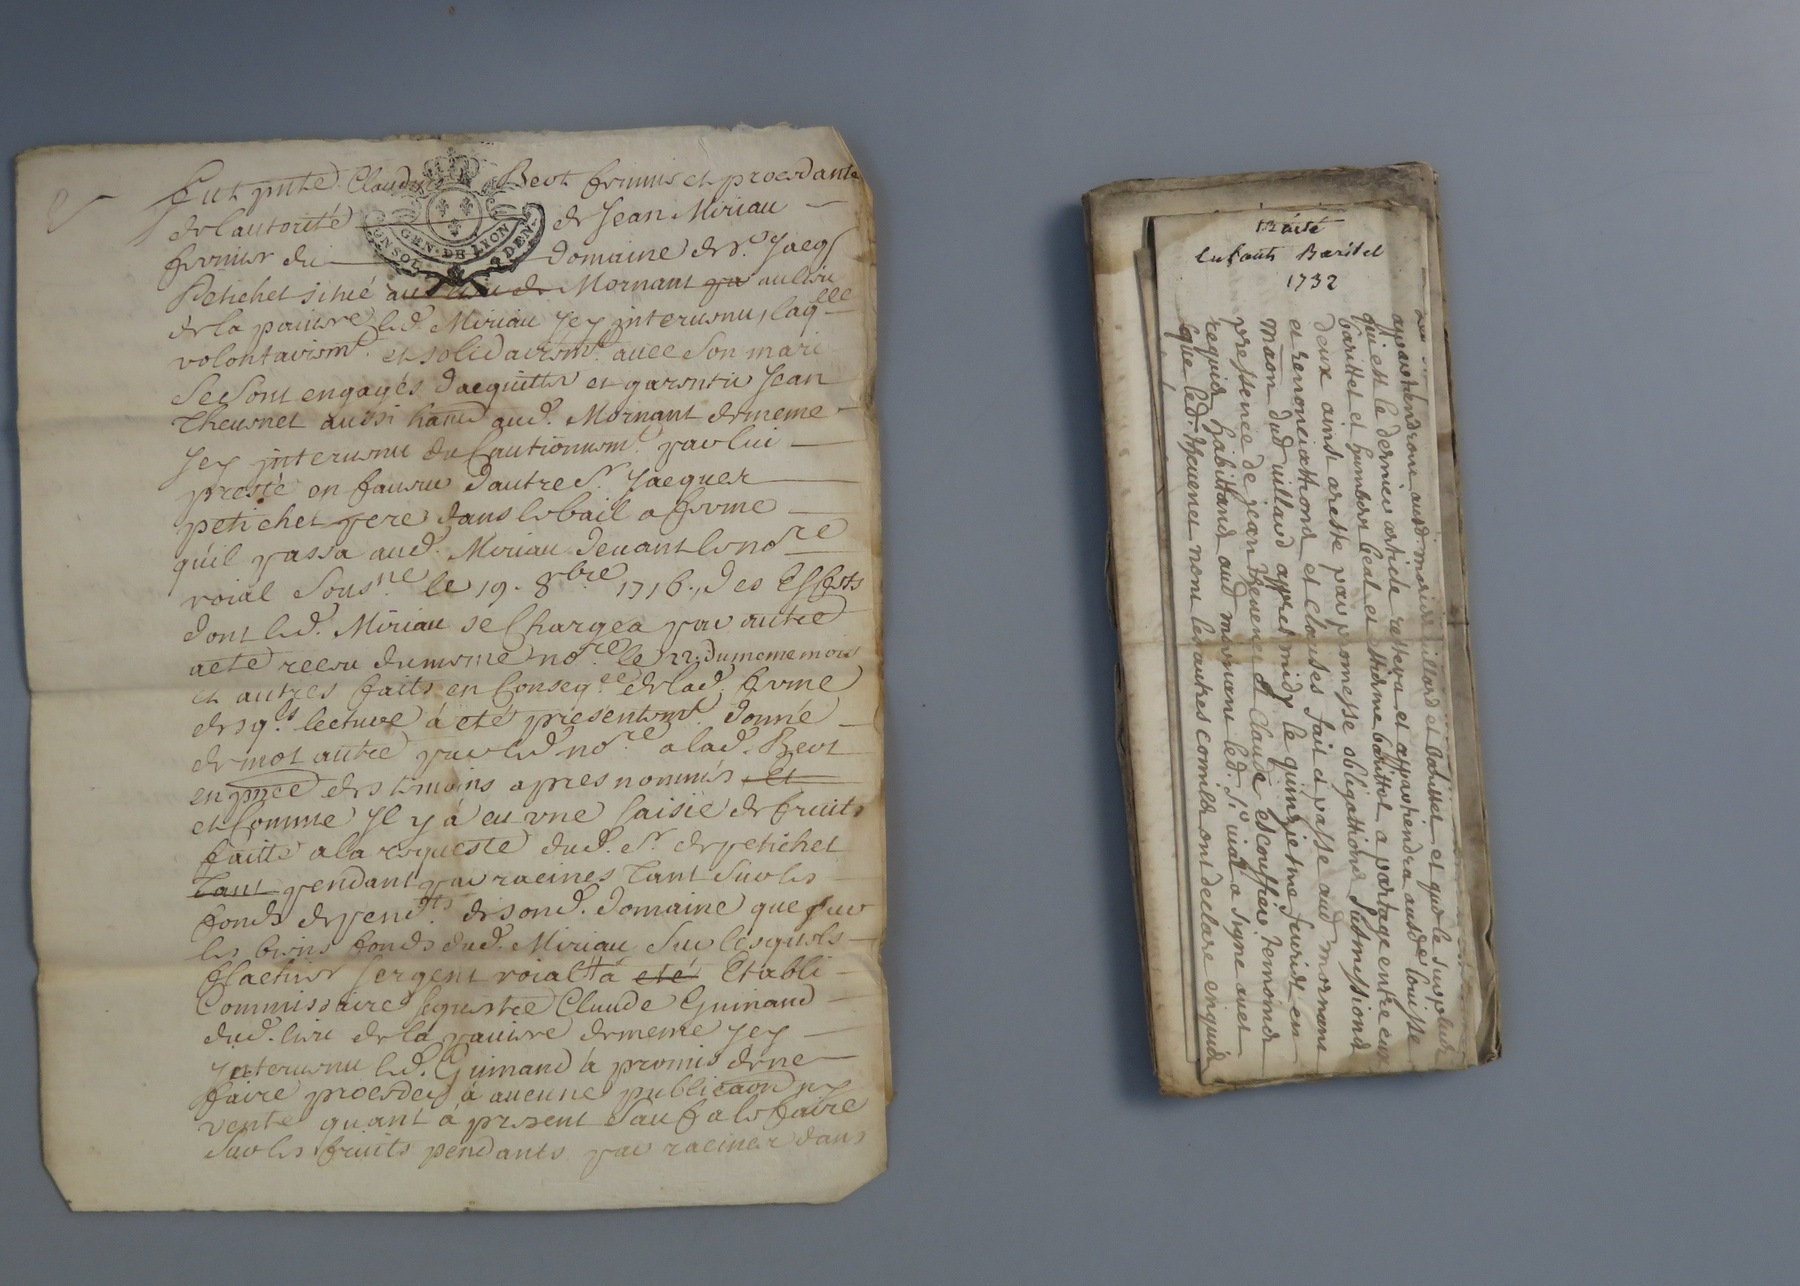 fut pnte Claudine Beot femme et procedante
de l'autorité de Jean Miriau
fermier du domaine de sr. Jacq
GEN. DE LYON
SOL DEN
Petichet situé au lieu de Mornant au lieu
de la pauvre led. Miriau jcy intervenu, laqlle
volontairemt. et solidairemt. avec son mari
se sont engagés d'acquitter et garentir Jean
Theuenet aussi hand aud. Mornant de meme
jcy intervenu du Cautionemt. par lui
presté en faveur d'autre Sr. Jacques
petichet pere dans le bail a ferme
qu'il passa aud. Miriau devant le nore
roial sousne. le 19. 8bre 1716., des Effets
dont led. Miriau se Chargea par autre
acte recu du meme nore. le 22. du meme mois
et autres faits en Conseqce de lad. ferme
desqs lecture à eté présentemt. donné
de mot autre par led. nore. a lad. Beot
en pnce des temoins apres nommés Et
et Comme Jl y à eu une saisie de fruits
faitte a la requeste dud. Sr. de petichet
Tant pendant par racines Tant sur les
fonds de son d. domaine que sur
les biens fonds dud. Miriau sur lesquels
sergent roial à eté Etabli
Commissaire sequestre Claude Guinand
dud. lieu de la pauvre de meme jcy
jntervenu led. Guinand à promis de ne
faire proceder à aucune publication ny
vente quant à present sauf a le faire
sur les fruits pendants par racines dans
Traité
Enfants Baritel
1732
apartiendront aud
qui est le dernier article restera et appartiendra aud louisse
barittel et humbert beal et baritel a partage entre eux
deux ainsi areste par promesse obligations submissions
et renonciations et clauses fait et passe aud mornant
maon dud uillard appres midy le quinziesme feurier en
pressence de jean theuenet et claude escouffier temoins
requis habitans aud mornant led. sr uial a signe auec
que led. theuenet nont les autres comils ont declare enquis